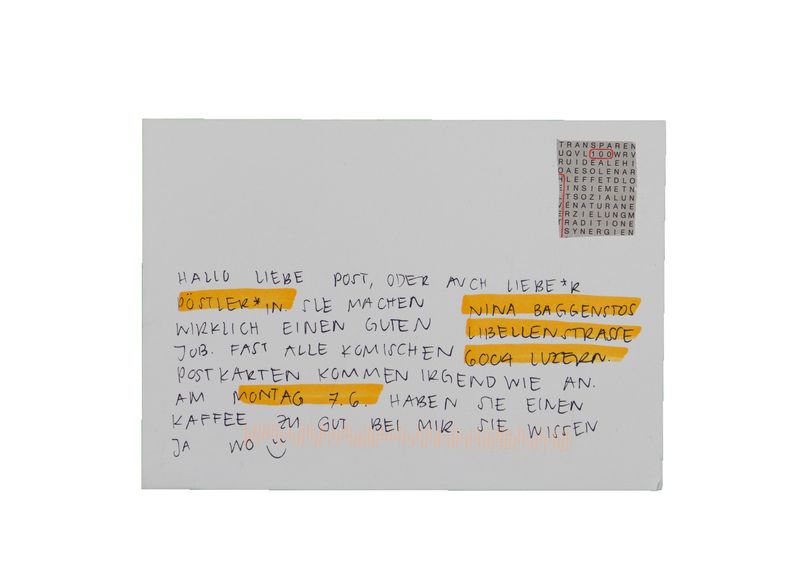 TRANSPAREN
UQVL100WRV
RUIDEALEHI
OAESOLENAR
HLEFFETDLO
EINSIEMETN
LTSOZIALUN
VENATURANE
ERZIELUNGM
TRADITIONE
SYNERGIEN
HALLO LIEBE POST, ODER AUCH LIEBE*R
PÖSTLER*IN. SIE MACHEN NINA BAGGENSTOS
WIRKLICH EINEN GUTEN LIBELLENSTRASSE
JOB. FAST ALLE KOMISCHEN 6004 LUZERN.
POSTKARTEN KOMMEN IRGENDWIE AN.
AM MONTAG 7.6. HABEN SIE EINEN
KAFFEE ZU GUT BEI MIR. SIE WISSEN
JA WO